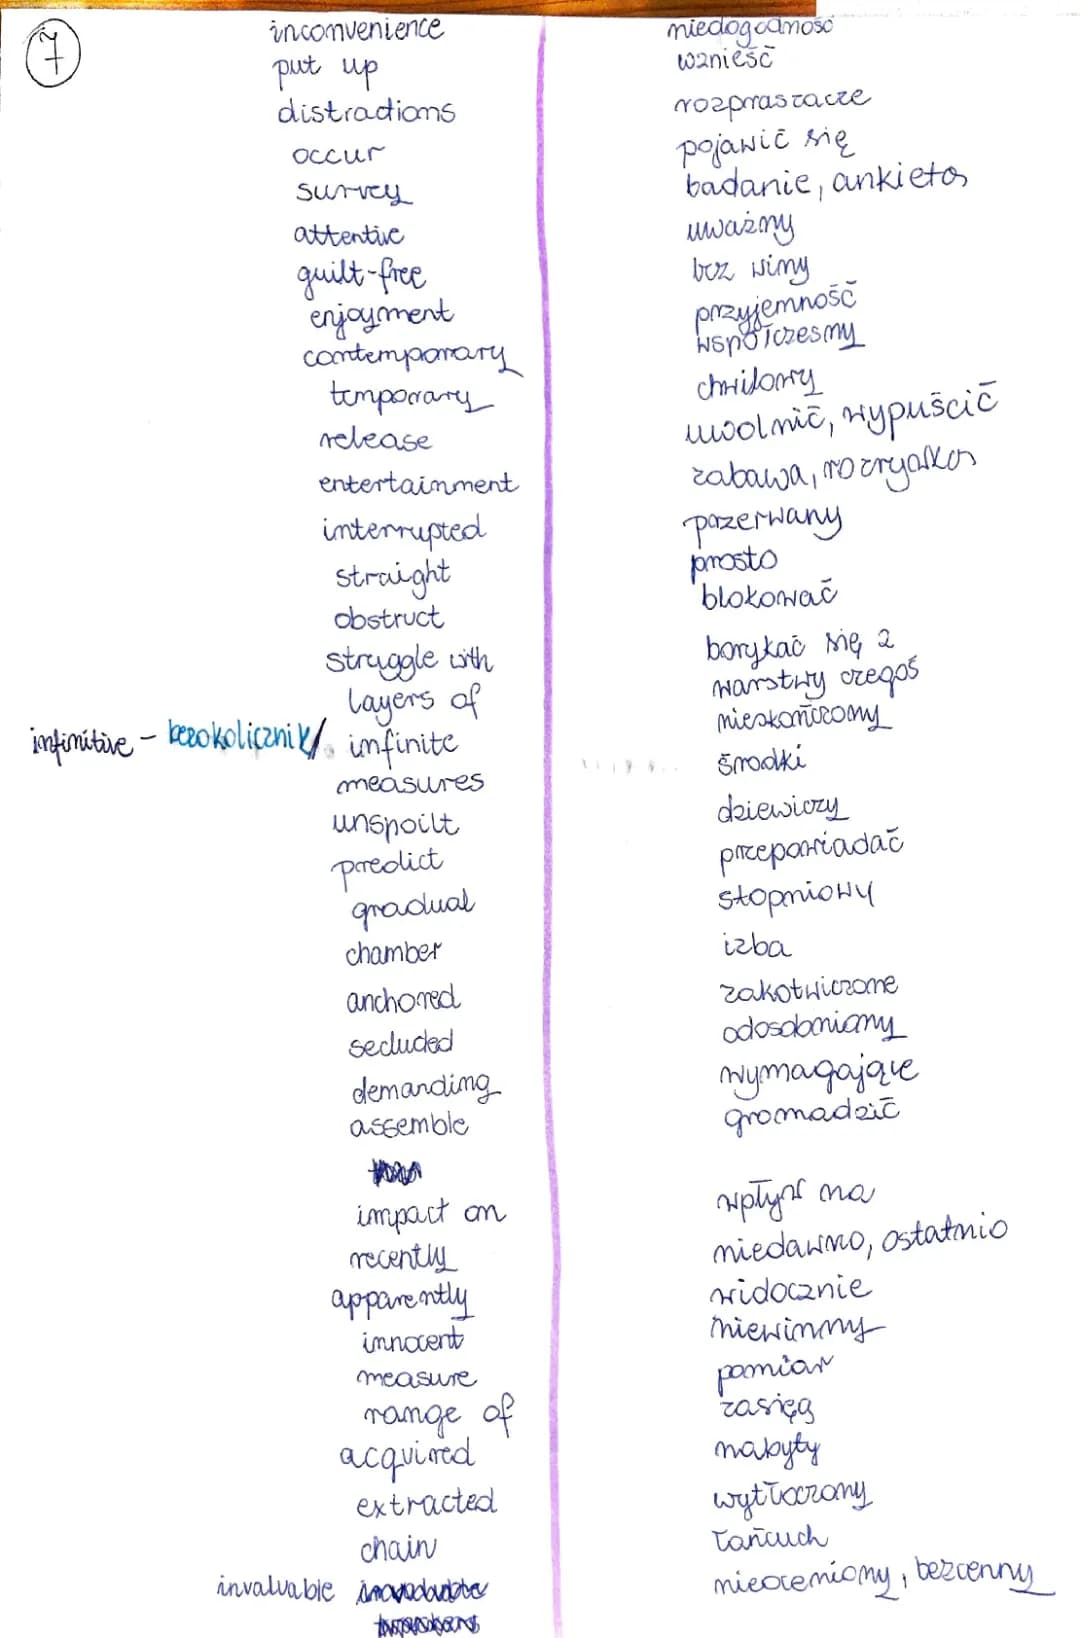 7
inconvenience niedogodność
put up wznieść
distractions rozpraszacze
occur pojawić się
survey badanie, ankieta
attentive uważny
guilt-free bez winy
enjoyment przyjemność
contemporary współczesny
temporary chwilowy
release uwolnić, wypuścić
entertainment zabawa, rozrywka
interrupted przerwany
straight prosto
obstruct blokować
struggle with borykać się z
layers of warstwy czegoś
infinitive - bezokolicznik/. infinite nieskończony
measures środki
unspoilt dziewiczy
predict przepowiadać
gradual stopniowy
chamber izba
anchored zakotwiczone
secluded odosobniony
demanding wymagające
assemble gromadzić
impact on wpływ na
recently niedawno, ostatnio
apparently widocznie
innocent niewinny
measure pomiar
range of zasięg
acquired nabyty
extracted wytłoczony
chain łańcuch
invaluable nieoceniony, bezcenny